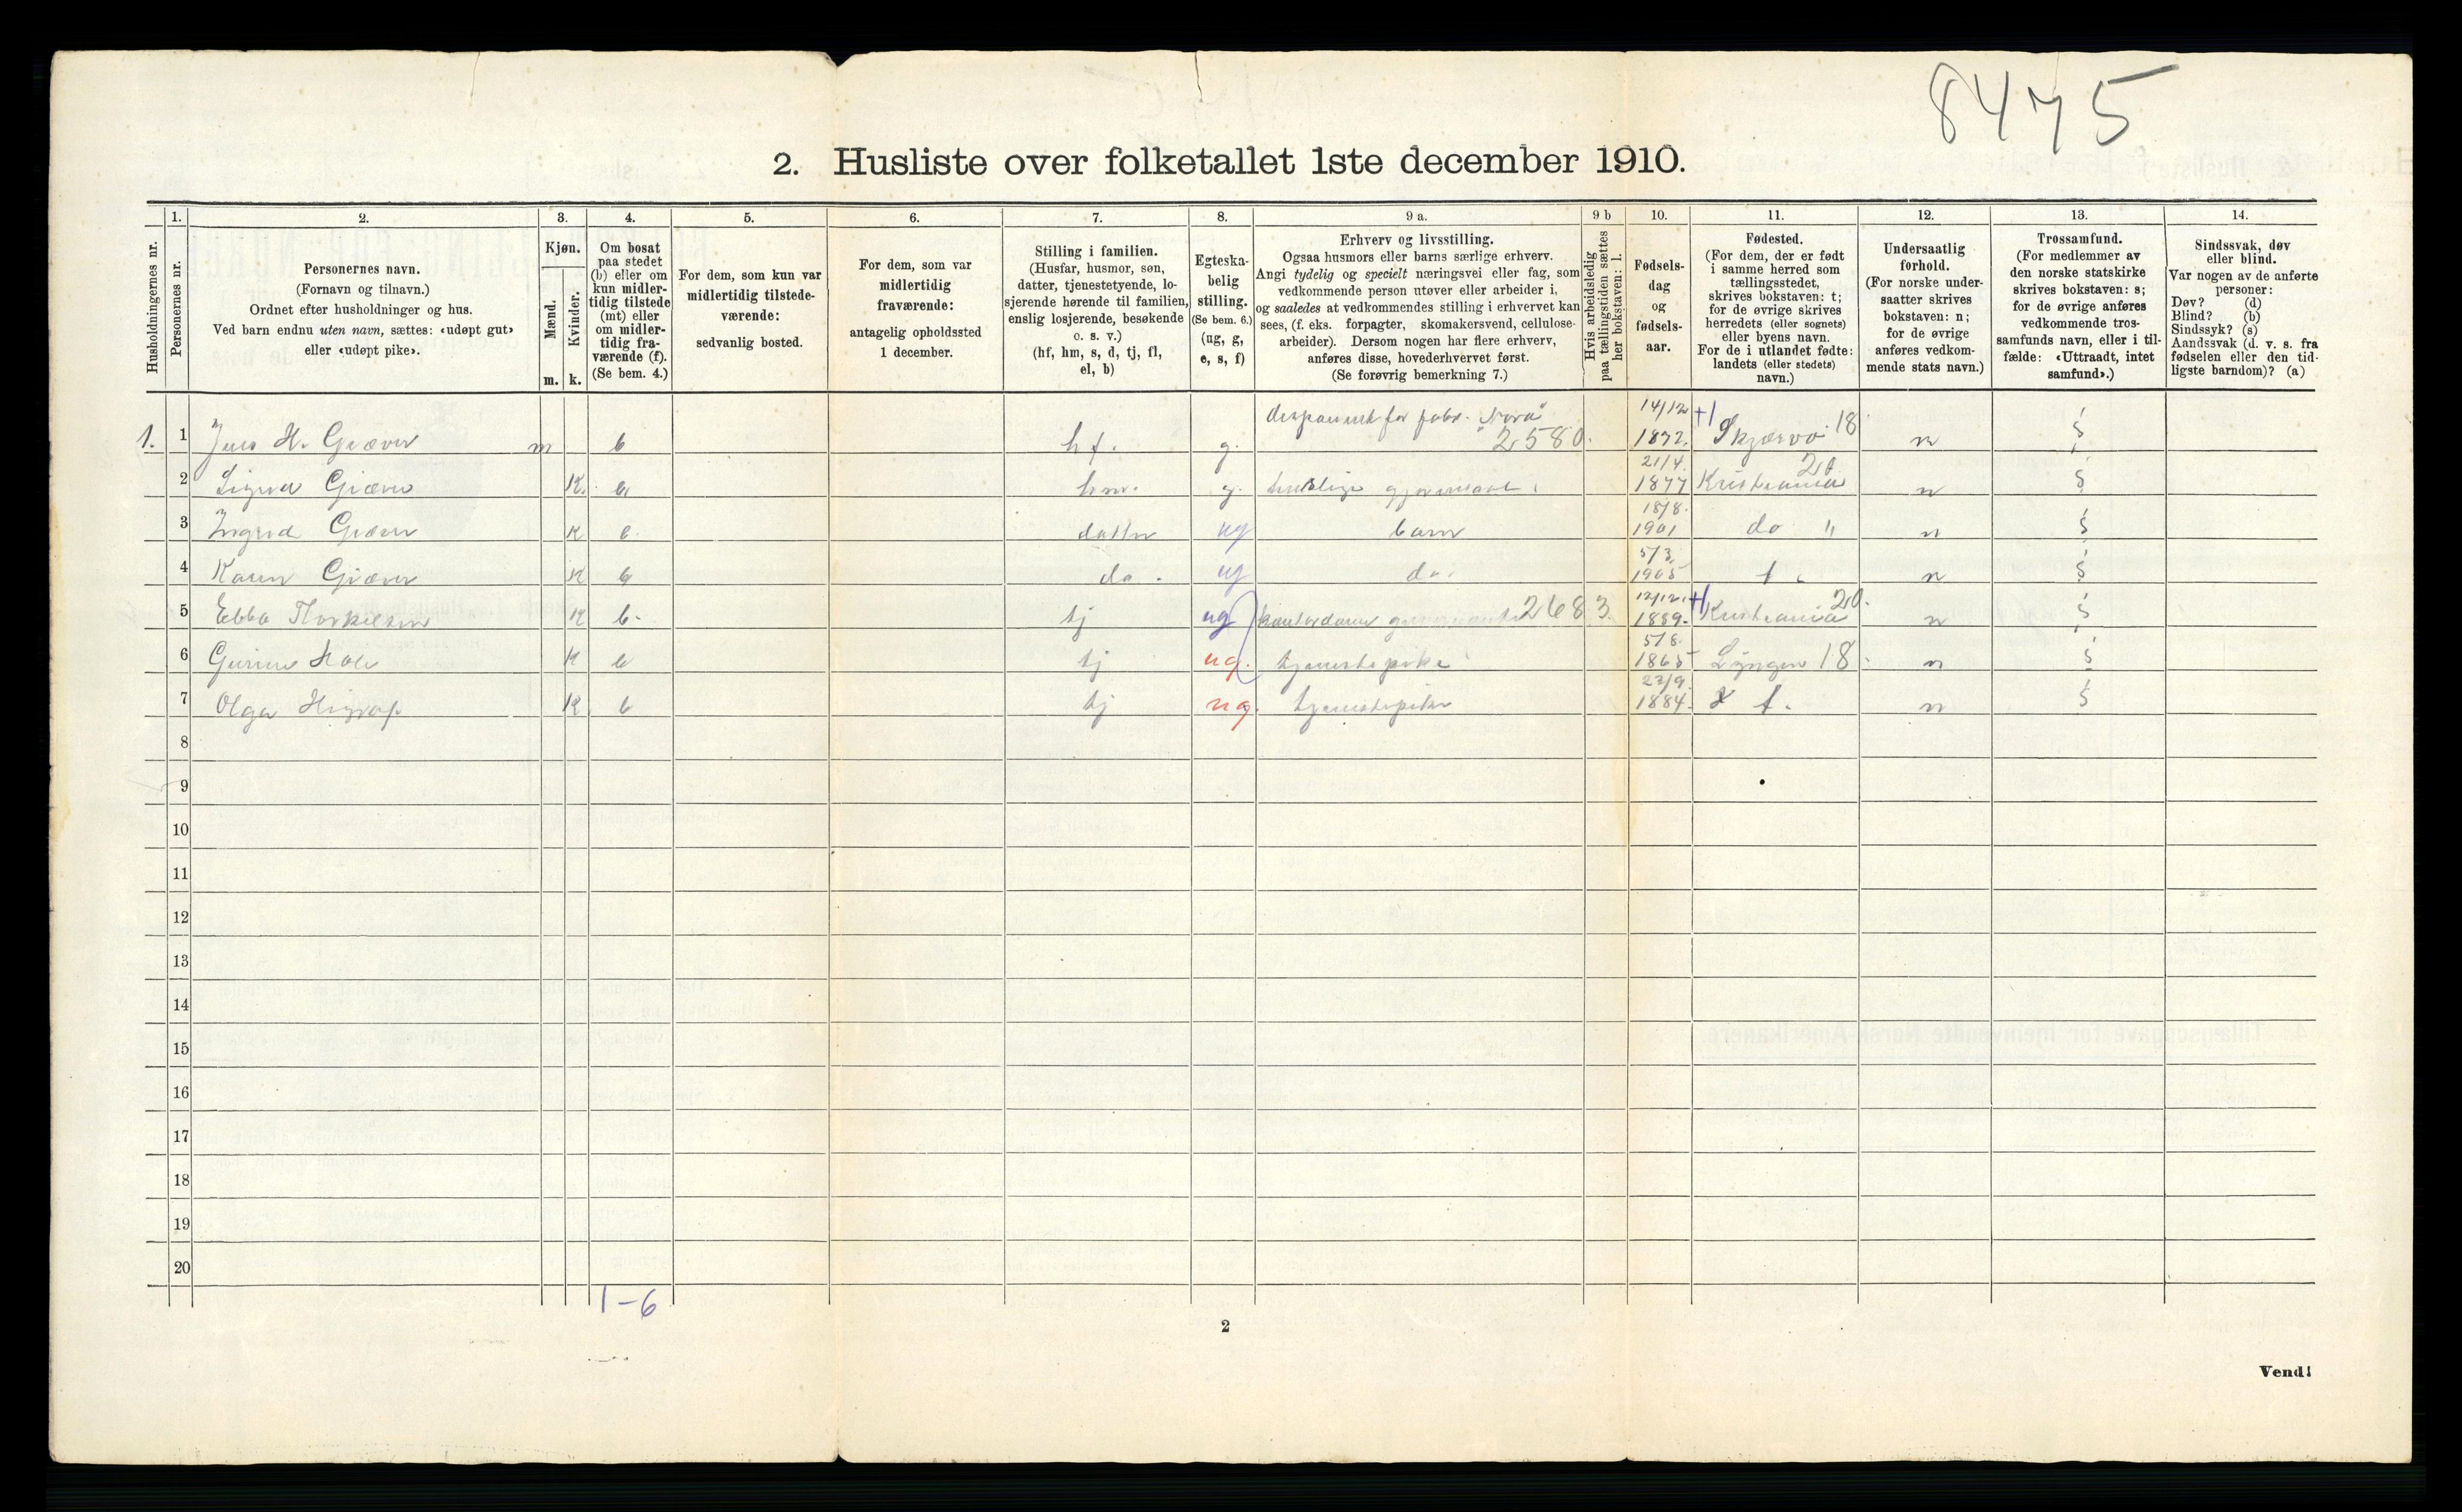 8475
2. Husliste over folketallet 1ste december 1910.
Husholdningernes nr.
1.
Personernes nr.
2.
Personernes navn.
(Fornavn og tilnavn.)
Ordnet efter husholdninger og hus.
Ved barn endnu uten navn, sættes: «udøpt gut»
eller «udøpt pike».
3.
Kjøn.
Mænd.
Kvinder.
m. k.
4.
Om bosat
paa stedet
(b) eller om
kun midler-
tidig tilstede
(mt) eller
om midler-
tidig fra-
værende (f).
(Se bem. 4.)
5.
For dem, som kun var
midlertidig tilstede-
værende:
sedvanlig bosted.
6.
For dem, som var
midlertidig
fraværende:
antagelig opholdssted
1 december.
7.
Stilling i familien.
(Husfar, husmor, søn,
datter, tjenestetyende, lo-
sjerende hørende til familien,
enslig losjerende, besøkende
o. s. v.)
(hf, hm, s, d, tj, fl,
el, b)
8.
Egteska-
belig
stilling.
(Se bem. 6.)
(ug, g,
e, s, f)
9 a.
Erhverv og livsstilling.
Ogsaa husmors eller barns særlige erhverv.
Angi tydelig og specielt næringsvei eller fag, som
vedkommende person utøver eller arbeider i,
og saaledes at vedkommendes stilling i erhvervet kan
sees, (f. eks. forpagter, skomakersvend, cellulose-
arbeider). Dersom nogen har flere erhverv,
anføres disse, hovederhvervet først.
(Se forøvrig bemerkning 7.)
9 b
Hvis arbeidsledig
paa tællingstiden sættes
her bokstaven: l.
10.
Fødsels-
dag
og
fødsels-
aar.
11.
Fødested.
(For dem, der er født
i samme herred som
tællingsstedet,
skrives bokstaven: t;
for de øvrige skrives
herredets (eller sognets)
eller byens navn.
For de i utlandet fødte:
landets (eller stedets)
navn.)
12.
Undersaatlig
forhold.
(For norske under-
saatter skrives
bokstaven: n;
for de øvrige
anføres vedkom-
mende stats navn.)
13.
Trossamfund.
(For medlemmer av
den norske statskirke
skrives bokstaven: s;
for de øvrige anføres
vedkommende tros-
samfunds navn, eller i til-
fælde: «Uttraadt, intet
samfund».)
14.
Sindssvak, døv
eller blind.
Var nogen av de anførte
personer:
Døv? (d)
Blind? (b)
Sindssyk? (s)
Aandssvak (d. v. s. fra
fødselen eller den tid-
ligste barndom)? (a)
1. 1 Jens H. Giæver m b hf. g. for fabr. "Nora" 2580. 14/12 1872. +1 Skjærvø 18 n s
2 Giæver K. b hm. g. huslige 21/4. 1877 Kristiania 20 n s
3 Ingrid Giæver K b datter ug barn 18/8. 1901 do " n s
4 Karen Giæver K b do. ug do. 5/3. 1905 t. n s
5 Ebba K b. tj ug kontordame 2683. 12/12. 1889. +1 Kristiania 20. n s
6 K b tj ug. tjenestepike 5/8. 1865 Lyngen 18. n s
7 Olga K b tj ug. tjenestepike 23/9. 1884. t. n s
8
9
10
11
12
13
14
15
16
17
18
19
20
1-6
2
Vend!